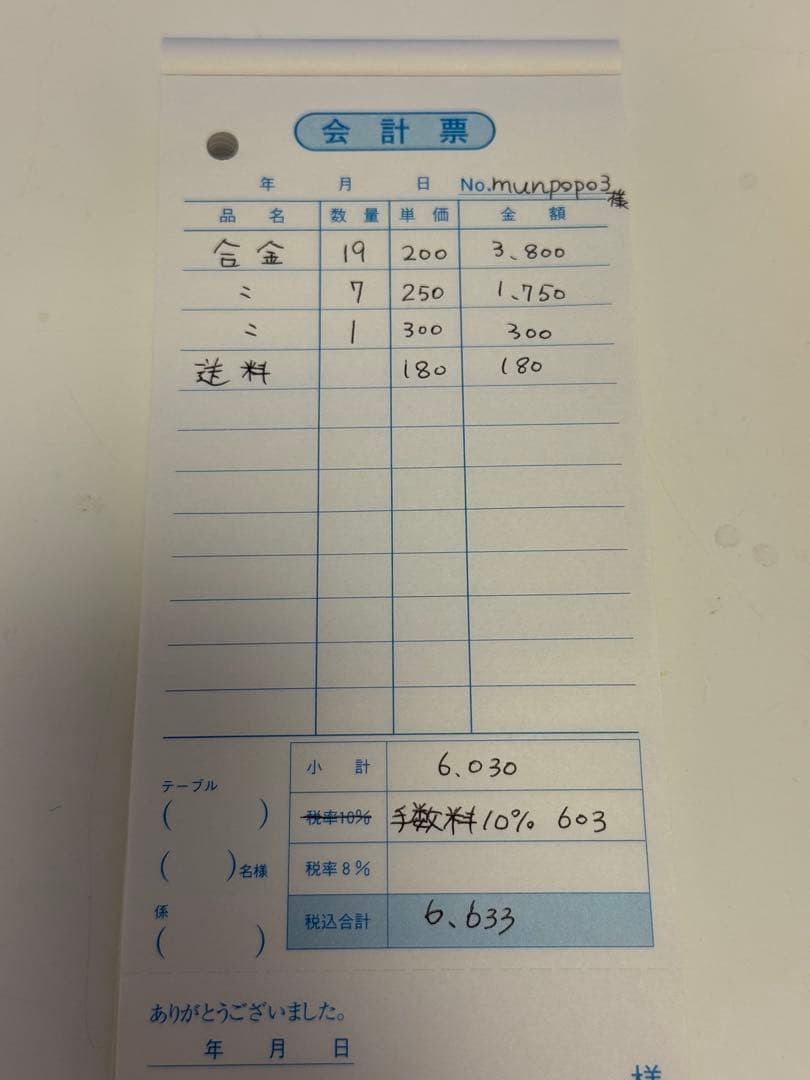 会計票
年 月 日 No.munpopo3様
品名 数量 単価 金額
合金 19 200 3、800
〃 7 250 1、750
〃 1 300 300
送料 180 180
小計 6、030
テーブル
( ) 税率10% 手数料10% 603
( )名様 税率8%
係
( ) 税込合計 6、633
ありがとうございました。
年 月 日
様